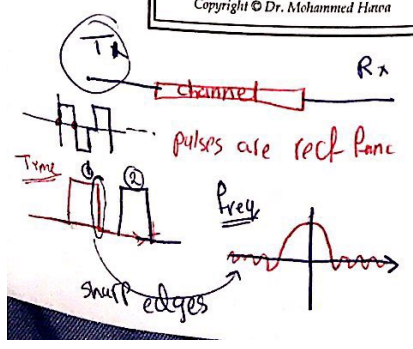 Copyright © Dr. Mohammed Hawa
Tx
channel
Rx
pulses are rect func
Time
① ②
Freq
sharp edges